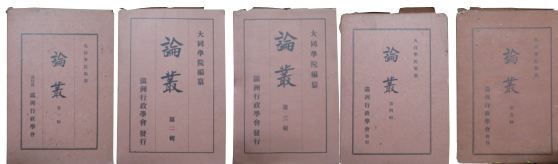 大同學院編纂
論叢
第一輯
滿洲行政學會
大同學院編纂
論叢
第二輯
滿洲行政學會發行
大同學院編纂
論叢
第三輯
滿洲行政學會發行
大同學院編纂
論叢
第四輯
滿洲行政學會
論叢
第五輯
滿洲行政學會